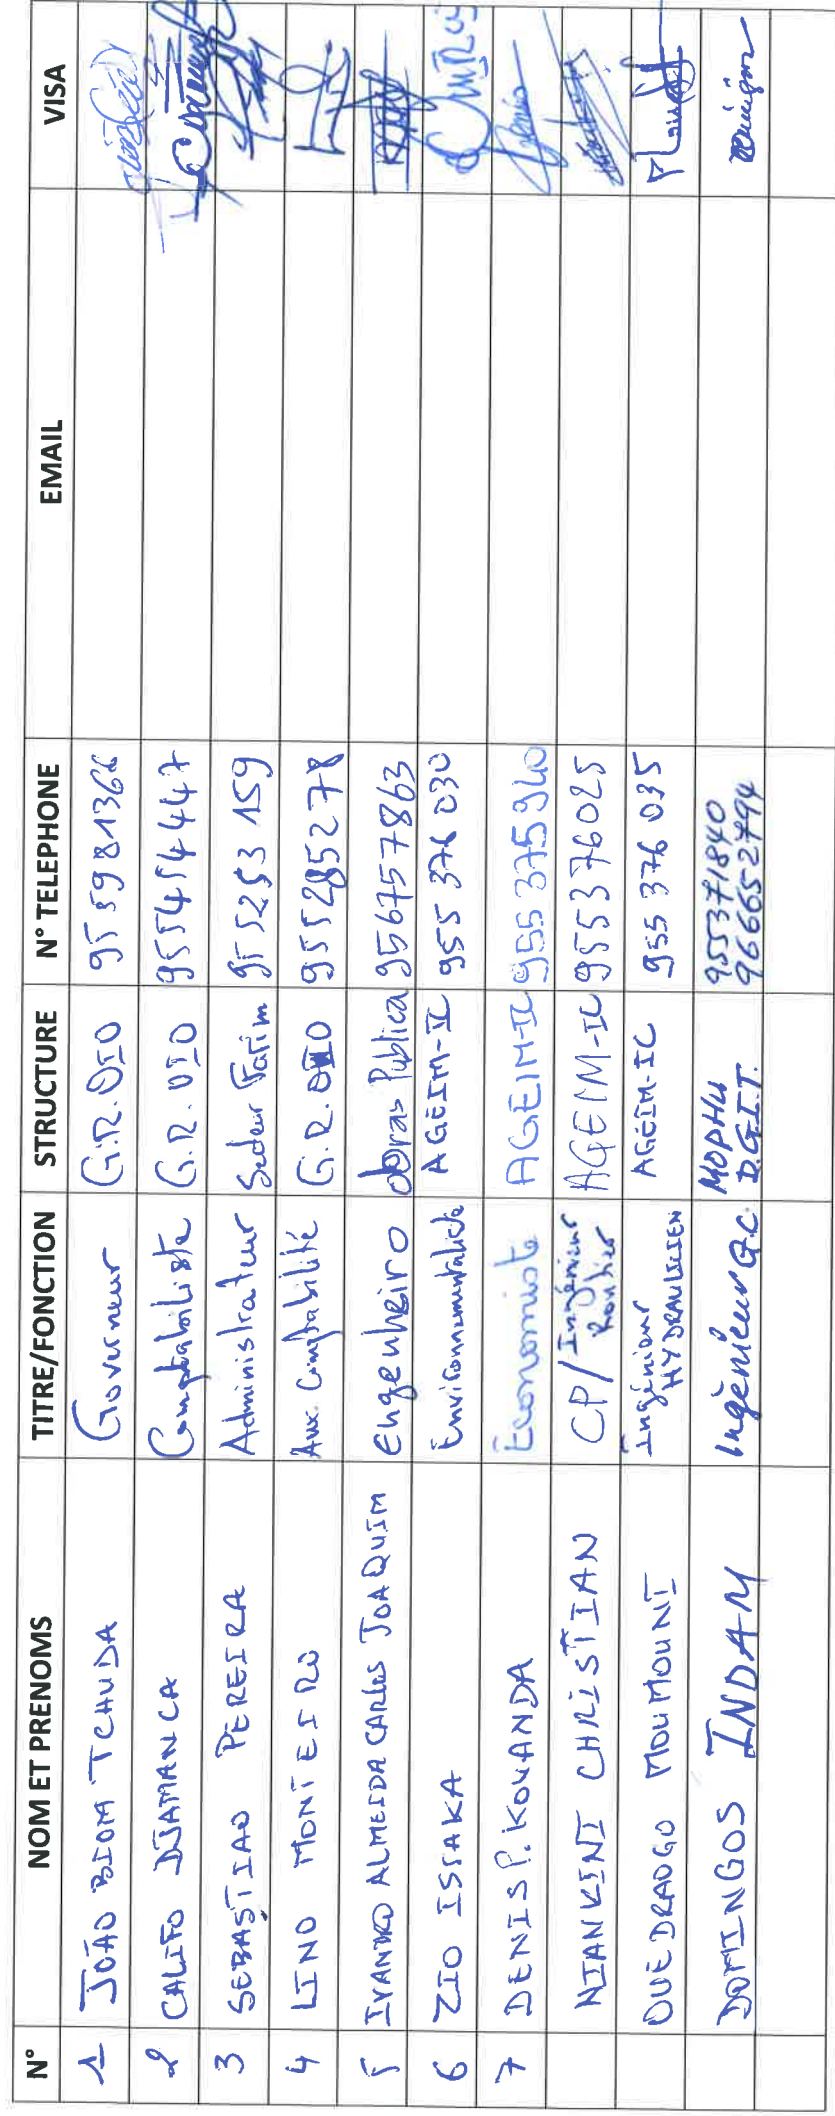 N° NOM ET PRENOMS TITRE/FONCTION STRUCTURE N° TELEPHONE EMAIL VISA
1 JOÃO BIOM TCHUDA Governeur G.R.OIO 955981366
2 CALIFO DJAMANCA Comptabiliste G.R.OIO 955454447
3 SEBASTIAO PEREIRA Administrateur Secteur Farim 955253 159
4 LINO MONTEIRO Aux. Comptabilité G.R.OIO 955285278
5 IVANDRO ALMEIDA CARLOS JOAQUIM Engenheiro obras Publica 956757863
6 ZIO ISSAKA Environnementaliste AGEIM-IC 955 376 030
7 DENIS P. KOUANDA Economiste AGEIM-IC 955 375 940
NIANKINI CHRISTIAN CP/ Ingénieur Routier AGEIM-IC 955376025
OUEDRAOGO MOUMOUNI Ingénieur HYDRAULICIEN AGEIM-IC 955 376 035
DOMINGOS INDAM Ingénieur G.C. MOPHU D.G.I.T. 955371840 966652794